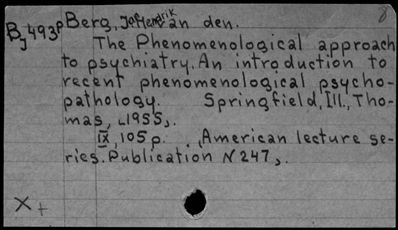 8
BJ493p Berg, Jan Hendrik van den.
The Phenomenological approach
to psychiatry. An introduction to
recent phenomenological psycho-
pathology. Springfield, Ill., Tho-
mas, 1955.
IX, 105 p. American lecture se-
ries. Publication N 247.
X +